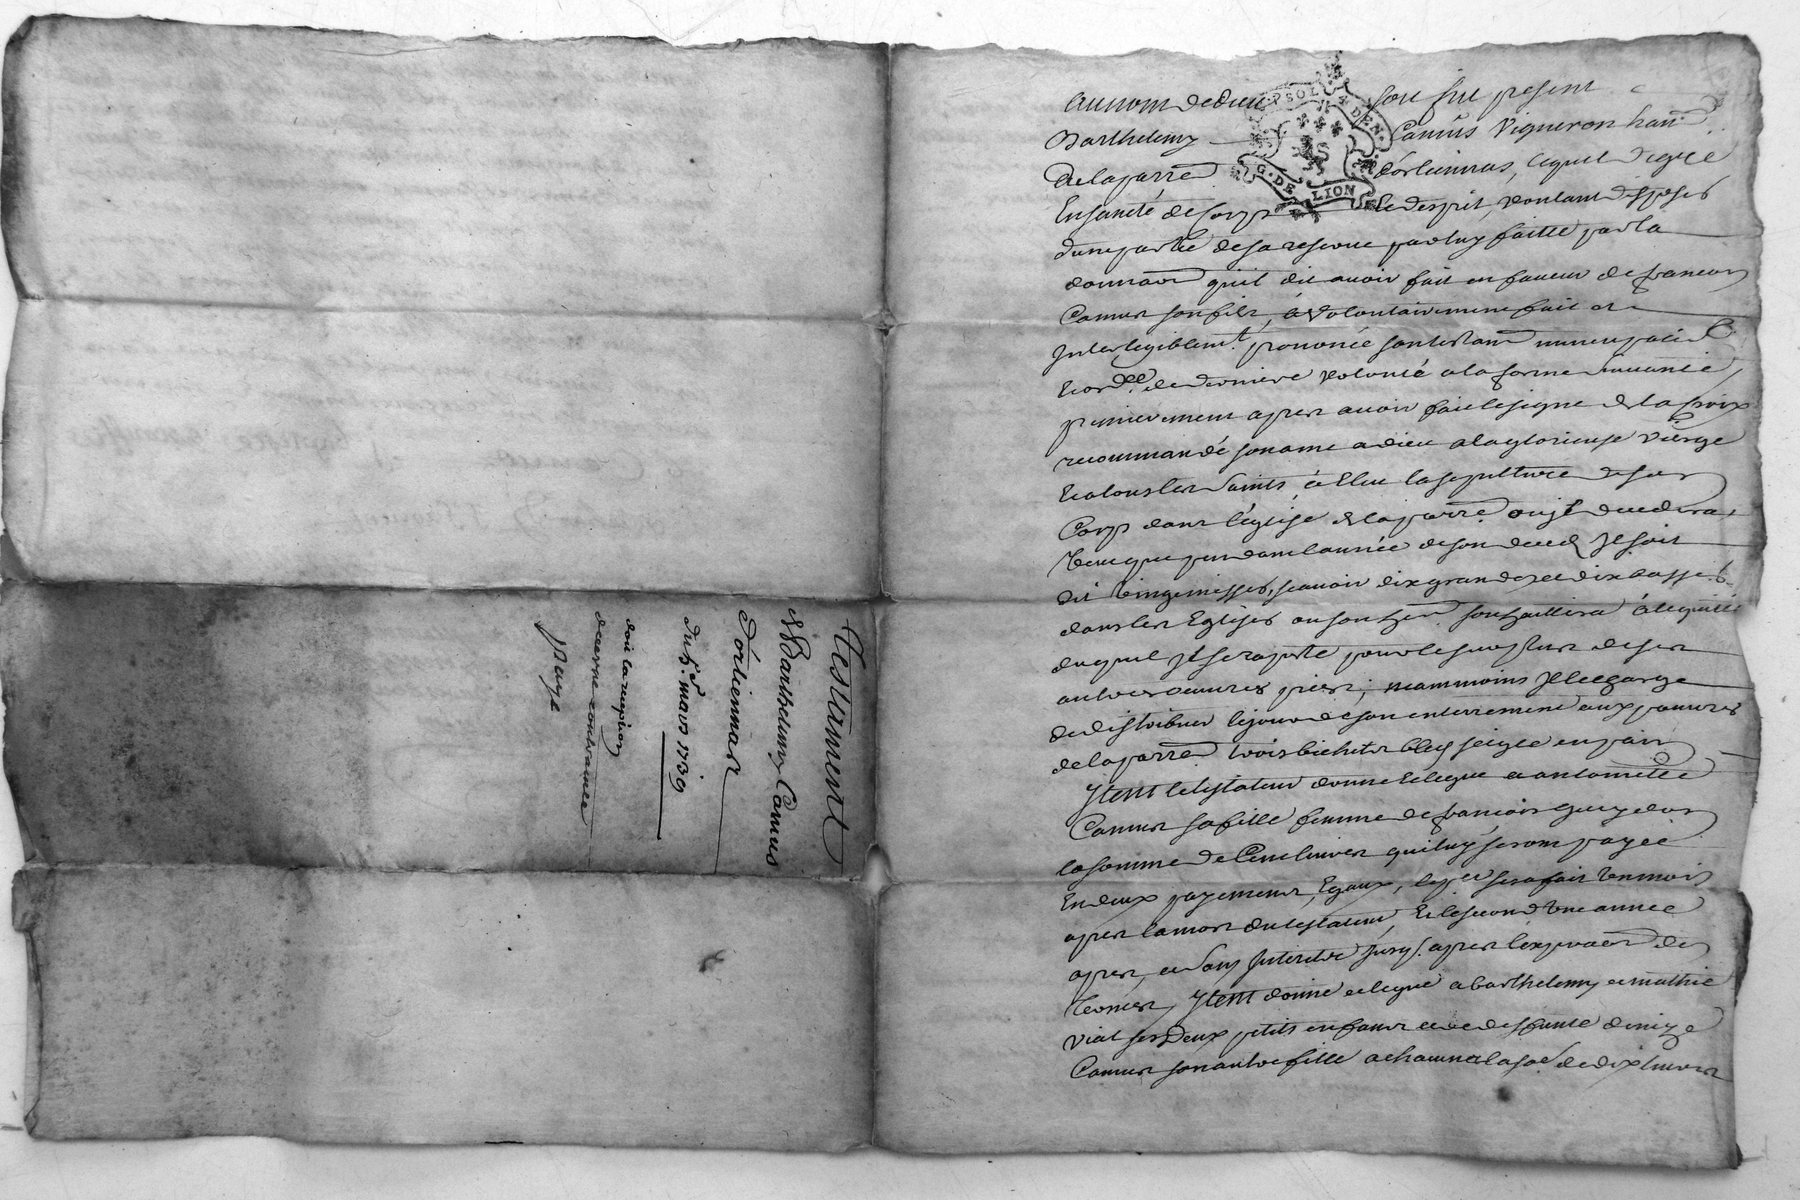 Testament
Barthelemy Camus
d'orliennas
du 5e. mars 1739
doit la reception
paye
SOL DEN.
G. DE LION
Au nom de dieu soit fut present
Barthelemy Camus vigneron hant.
de la parre. d'orliennas, lequel de gré
En santé de corps et d'esprit, voulant disposer
d'une partie de sa reserve par luy faitte par la
donnaon qu'il dit avoir fait en faveur de francois
Camus son fils, à volontairement fait et
Intelligiblemt. prononcé son testamt nuncupatif
Et ordce. de derniere volonté a la forme suivante,
premierement apres avoir fait le signe de la croix
recommandé son ame a dieu a la glorieuse vierge
Et a tous les saints, à Elu la sepulture de son
Corps dans l'église de la parre. ou jl decedera,
Veut que pendant l'année de son deced jl soit
dit vingt messes, scavoir dix grandes et dix basses
dans les Eglises ou son her. souhaittera à l'equitté
duquel jl se raporte pour le surplus de ses
autres oeuvres pies; neammoins jl le charge
de distribuer le jour de son enterrement aux pauvres
de la parre. trois bichets bled seigle en pain
Jtem le testateur donne et legue a antoinette
Camus sa fille femme de francois
la somme de Cent livres qui luy seront payée
En deux payements Egaux, le per sera fait un mois
apres la mort du testateur, Et le second une année
apres, et sans Interest jusq. apres l'expiraon des
termes, Jtem donne et legue a barthelemy et mathie
Viat ses deux petits enfants et de deffunte denize
Camus son autre fille a chacun la soe. de dix livres